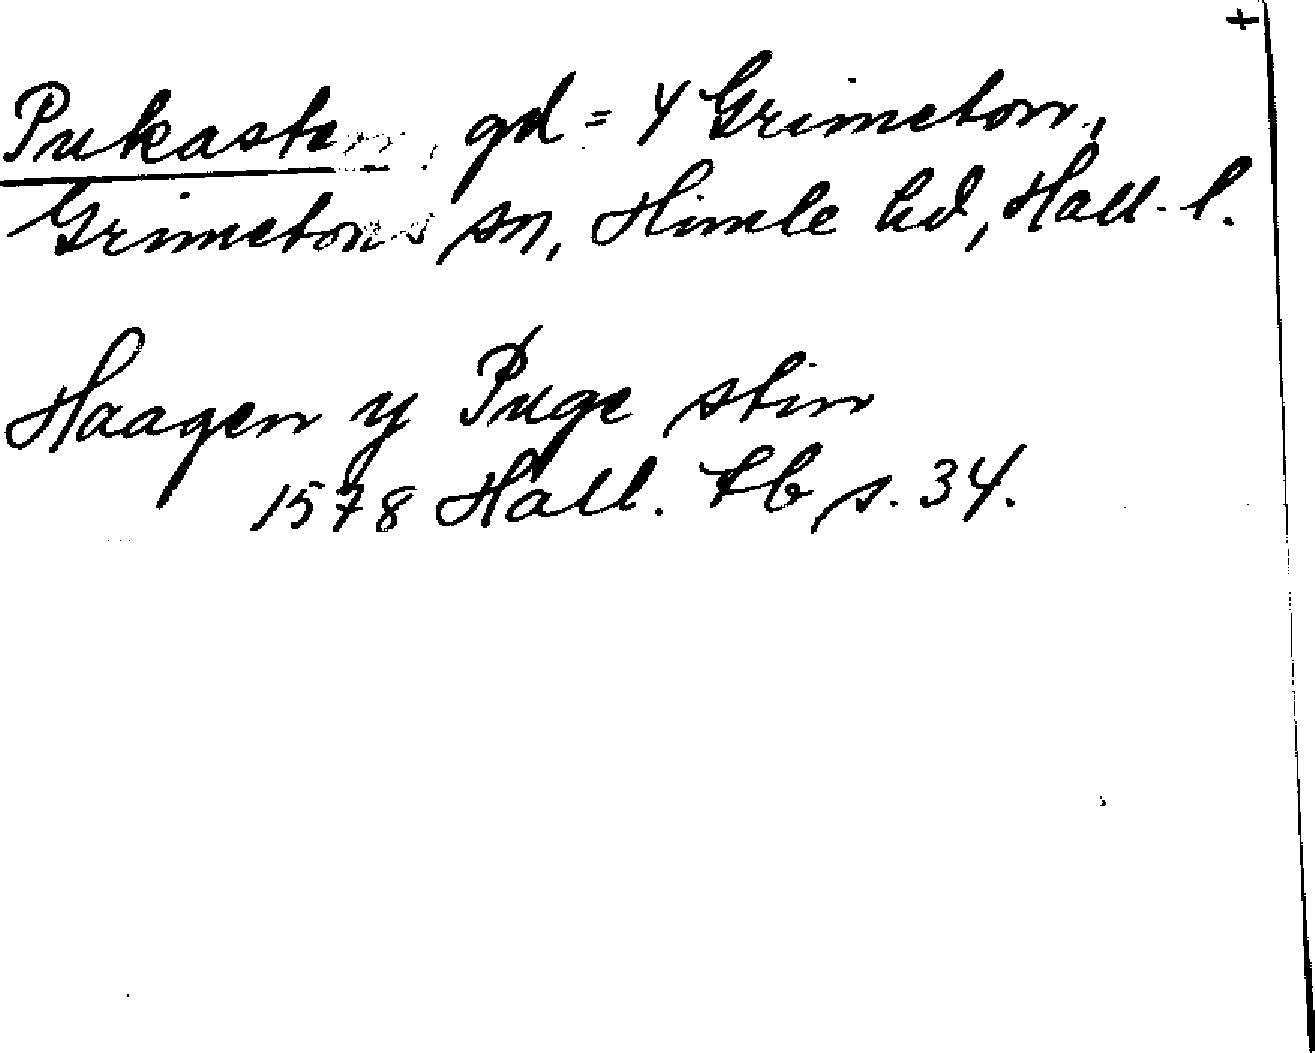 +
Pukasten, gd = 4 Grimeton,
Grimetons sn, Himle hd, Hall. l.
Haagen y Puge stin
1578 Hall. tb s. 34.